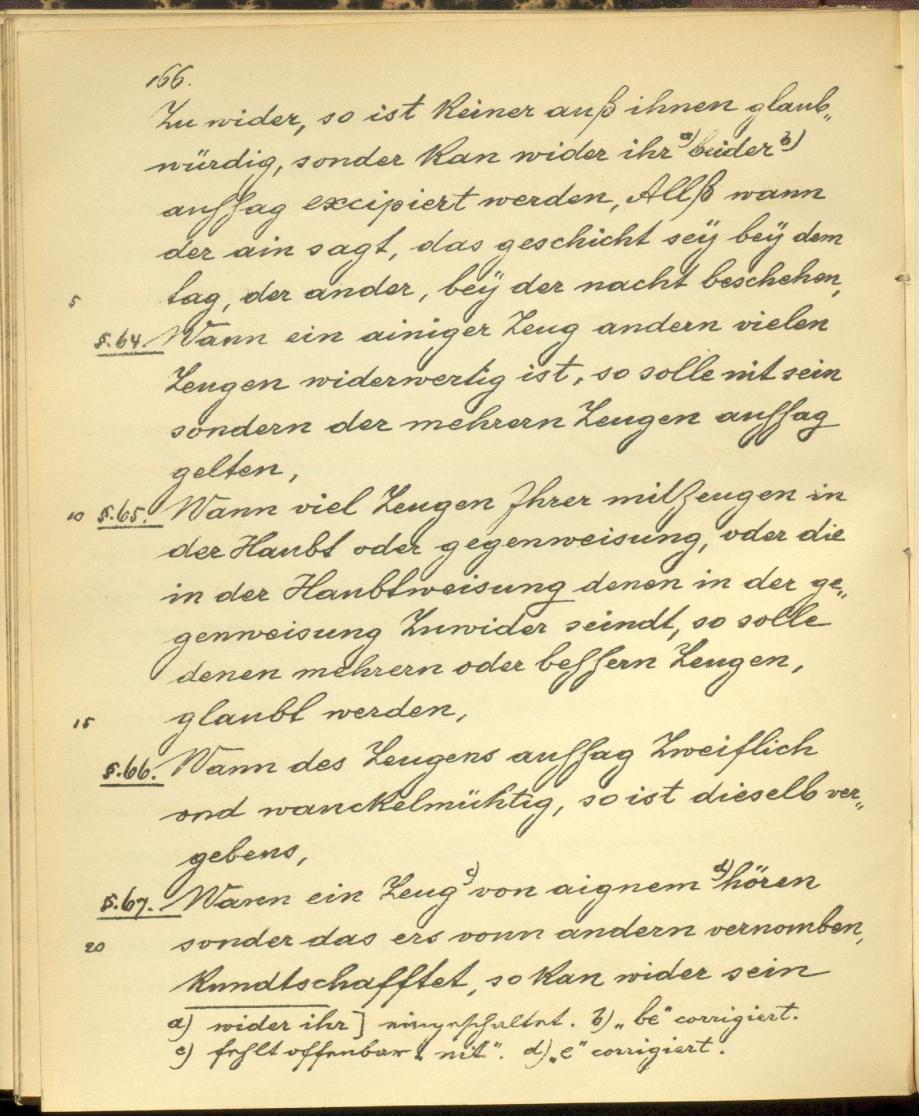 166.
Zu wider, so ist Keiner auß ihnen glaub„
würdig, sonder Kan wider ihr a) beider b)
aussag excipiert werden, Allß wann
der ain sagt, das geschicht seÿ beÿ dem
5 tag, der ander, beÿ der nacht beschehen,
§.64. Wann ein ainiger Zeug andern vielen
Zeugen widerwertig ist, so solle nit sein
sondern der mehrern Zeugen aussag
gelten,
10 §.65. Wann viel Zeugen Ihrer mitZeugen in
der Haubt oder gegenweisung, oder die
in der Haubtweisung denen in der ge„
genweisung Zuwider seindt, so solle
denen mehrern oder bessern Zeugen,
15 glaubt werden,
§.66. Wann des Zeugens aussag Zweiflich
ond wanckelmühtig, so ist dieselb ver„
gebens,
§.67. Wann ein Zeug c) von aignem d) hören
20 sonder das ers vonn andern vernomben,
Kundtschafftet, so Kan wider sein
a) wider ihr] eingeschaltet. b) „be“ corrigiert.
c) fehlt offenbar „nit“. d) „e“ corrigiert.